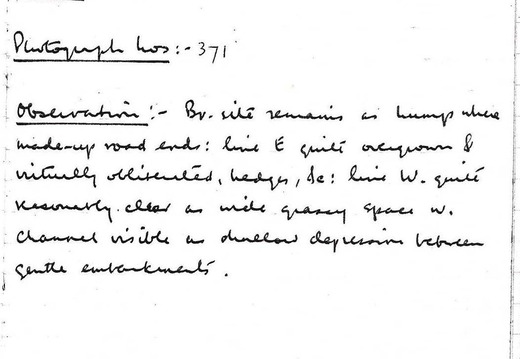 Photograph nos:- 371
Observation:- Br. site remains as hump where
made-up road ends: line E quite overgrown &
virtually obliterated, hedges, &c: line W. quite
reasonably clear as wide grassy space w.
channel visible as shallow depression between
gentle embankments.